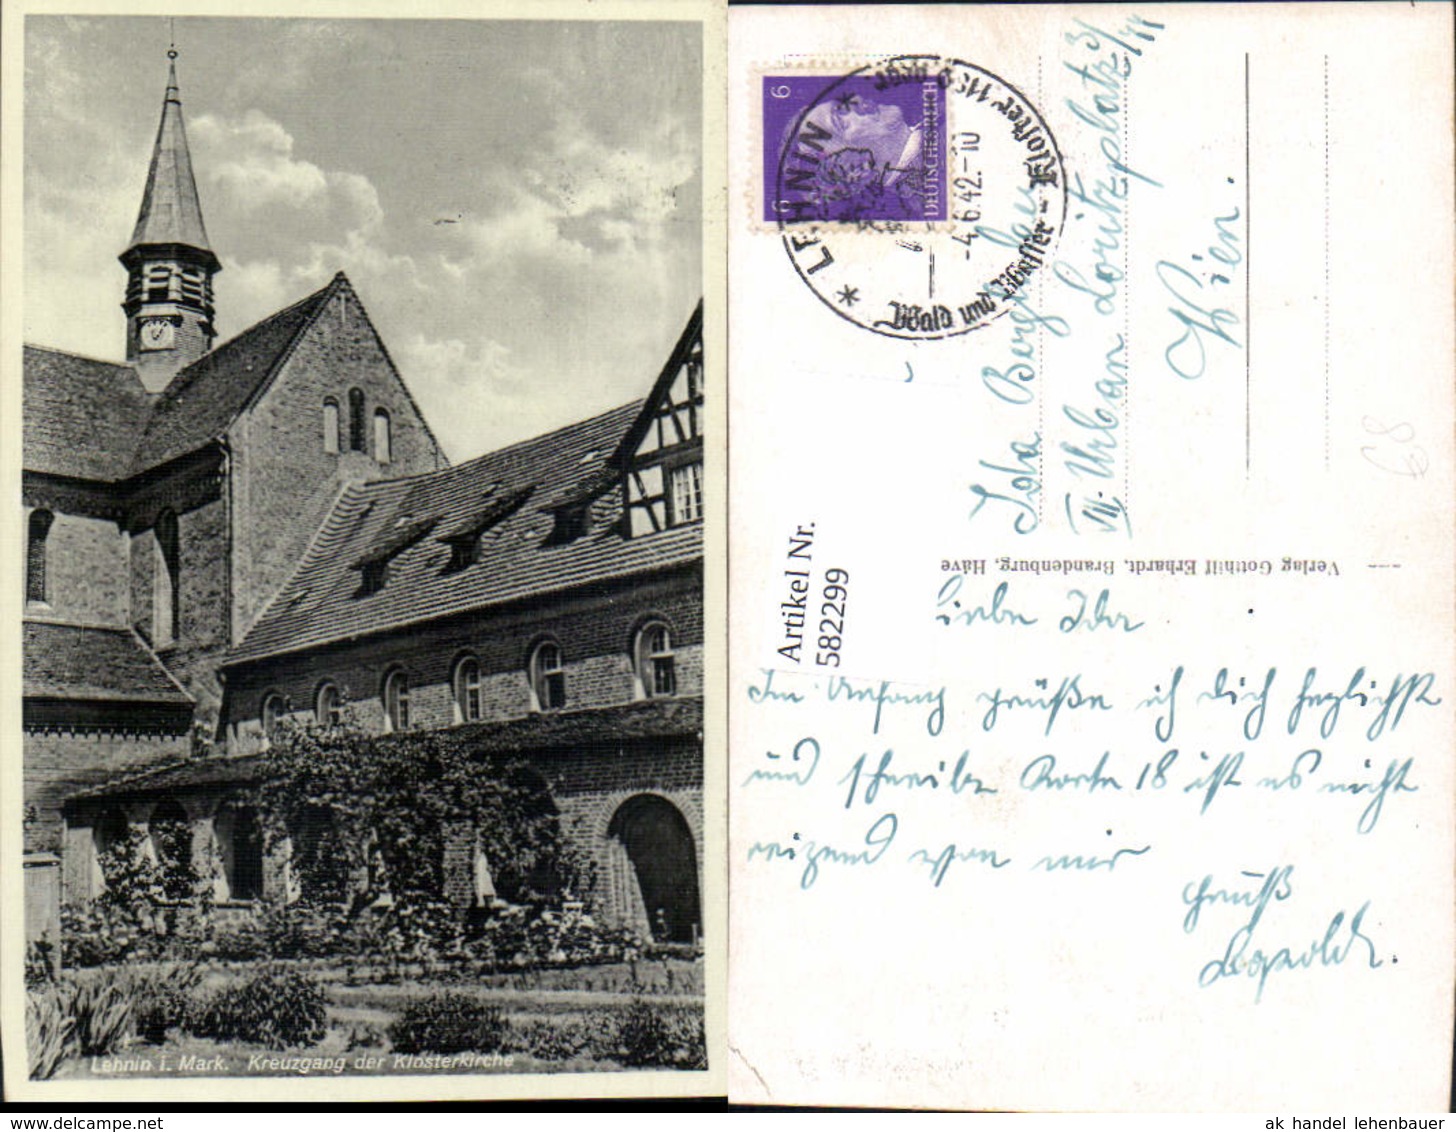 Lehnin i. Mark. Kreuzgang der Klosterkirche
6
6
DEUTSCHES REICH
* LEHNIN *
Wald und Wasser - Kloster 1180 gegr.
-4.6.42.-10
Ida
Urban Loritzplatz 3/
Wien.
68
Verlag Gotthilf Erhardt, Brandenburg, Have
Artikel Nr.
582299
Liebe Ida
Im Anfang grüße ich Dich herzlichst
und schreibe Karte 18 ist es nicht
reizend von mir
Gruß
Leopold.
ak handel lehenbauer